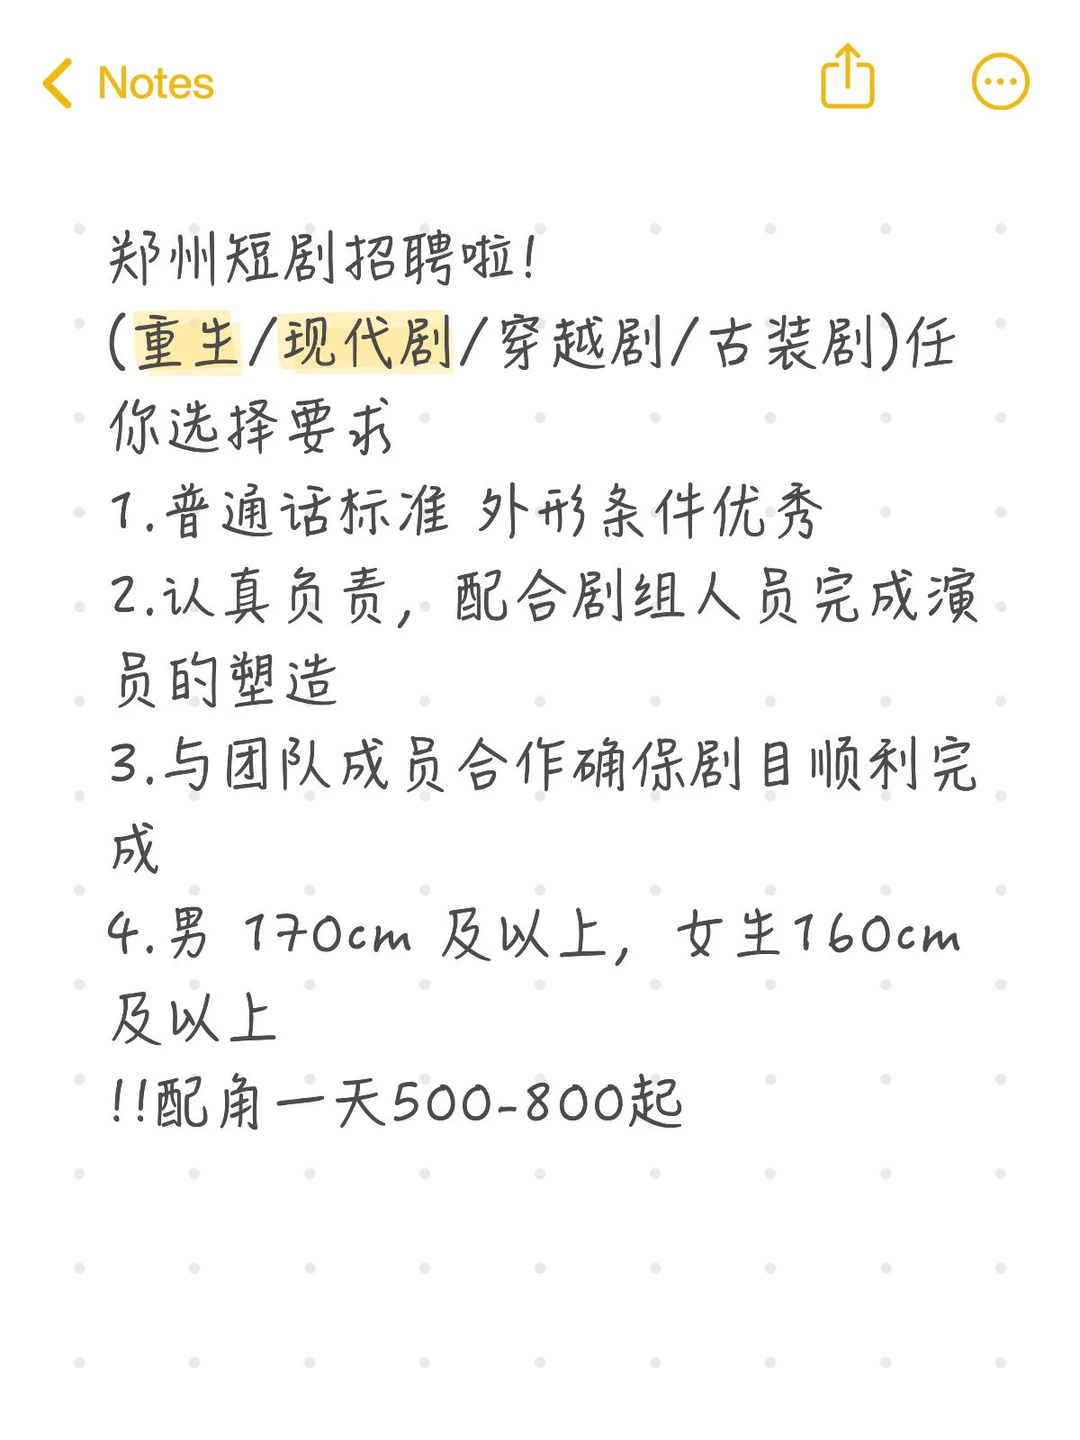 Notes
郑州短剧招聘啦!
(重生/现代剧/穿越剧/古装剧)任
你选择要求
1.普通话标准 外形条件优秀
2.认真负责,配合剧组人员完成演
员的塑造
3.与团队成员合作确保剧目顺利完
成
4.男 170cm 及以上,女生160cm
及以上
!!配角一天500-800起